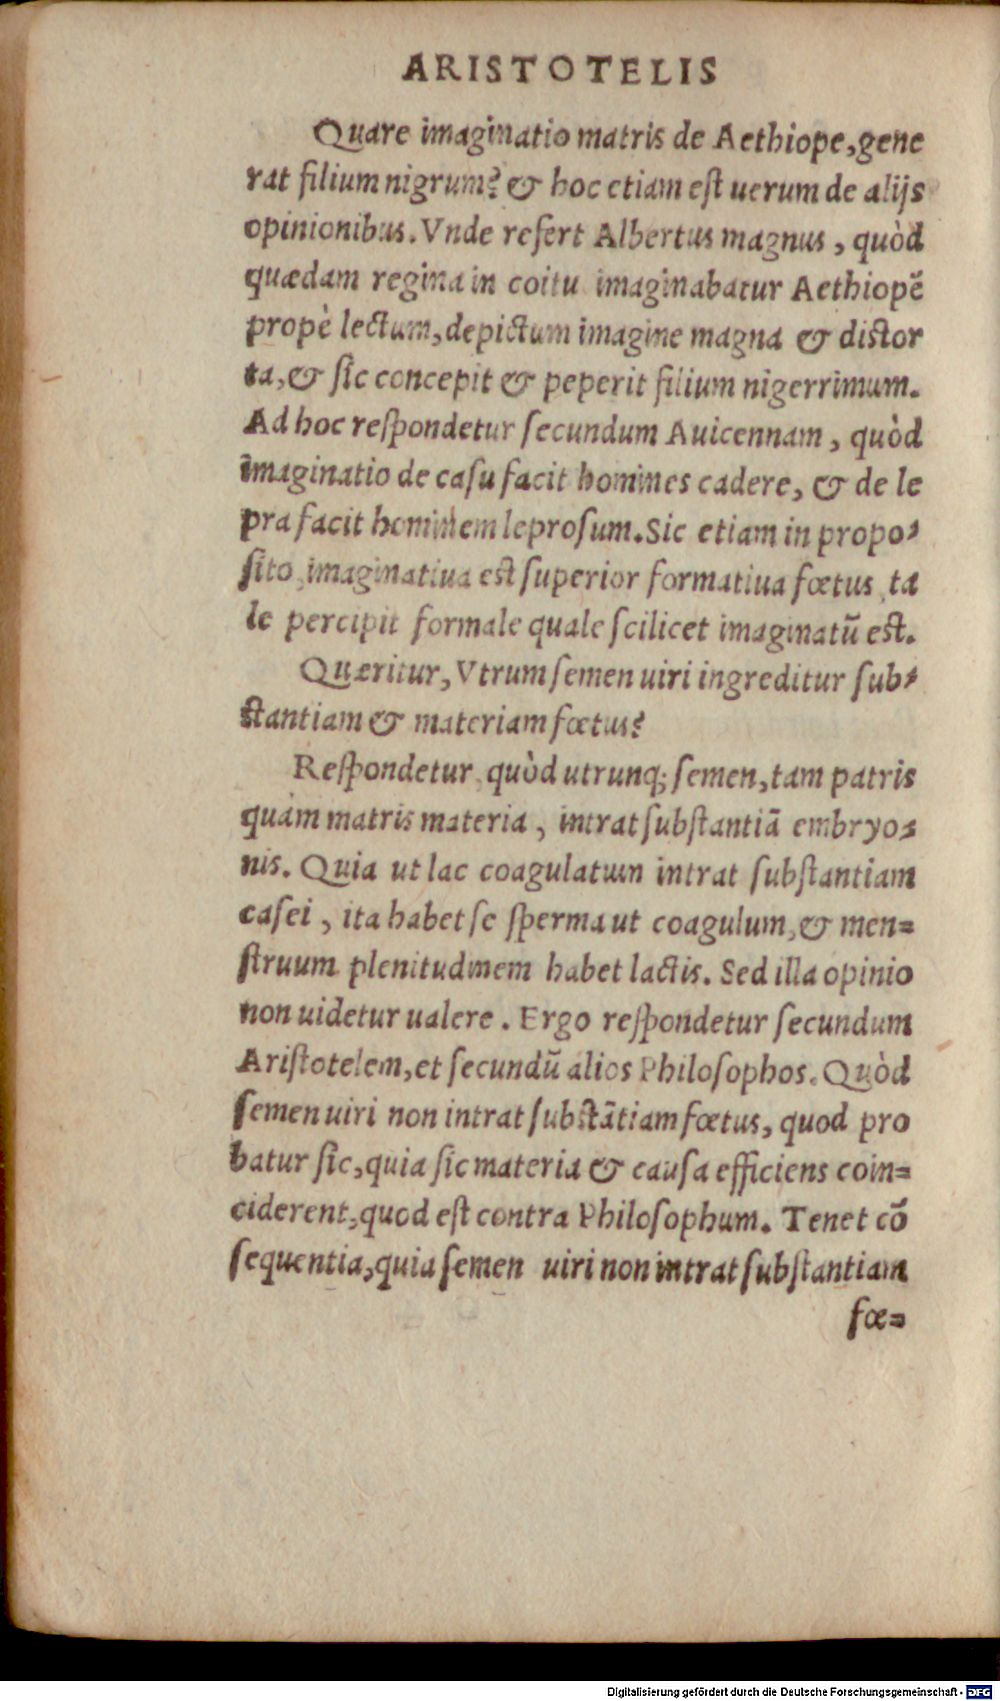 ARISTOTELIS
Quare imaginatio matris de Aethiope, gene
rat filium nigrum? & hoc etiam est uerum de alijs
opinionibus. Vnde refert Albertus magnus, quòd
quædam regina in coitu imaginabatur Aethiopẽ
propè lectum, depictum imagine magna & distor
ta, & sic concepit & peperit filium nigerrimum.
Ad hoc respondetur secundum Auicennam, quòd
imaginatio de casu facit homines cadere, & de le
pra facit hominem leprosum. Sic etiam in propo-
sito, imaginatiua est superior formatiua fœtus, ta
le percipit formale quale scilicet imaginatũ est.
Quæritur, Vtrum semen uiri ingreditur sub-
stantiam & materiam fœtus?
Respondetur, quòd utrunq; semen, tam patris
quàm matris materia, intrat substantiã embryo-
nis. Quia ut lac coagulatum intrat substantiam
casei, ita habet se sperma ut coagulum, & men-
struum plenitudinem habet lactis. Sed illa opinio
non uidetur ualere. Ergo respondetur secundum
Aristotelem, et secundũ alios Philosophos. Quòd
semen uiri non intrat substãtiam fœtus, quod pro
batur sic, quia sic materia & causa efficiens coin-
ciderent, quod est contra Philosophum. Tenet cõ
sequentia, quia semen uiri non intrat substantiam
fœ-
Digitalisierung gefördert durch die Deutsche Forschungsgemeinschaft - DFG